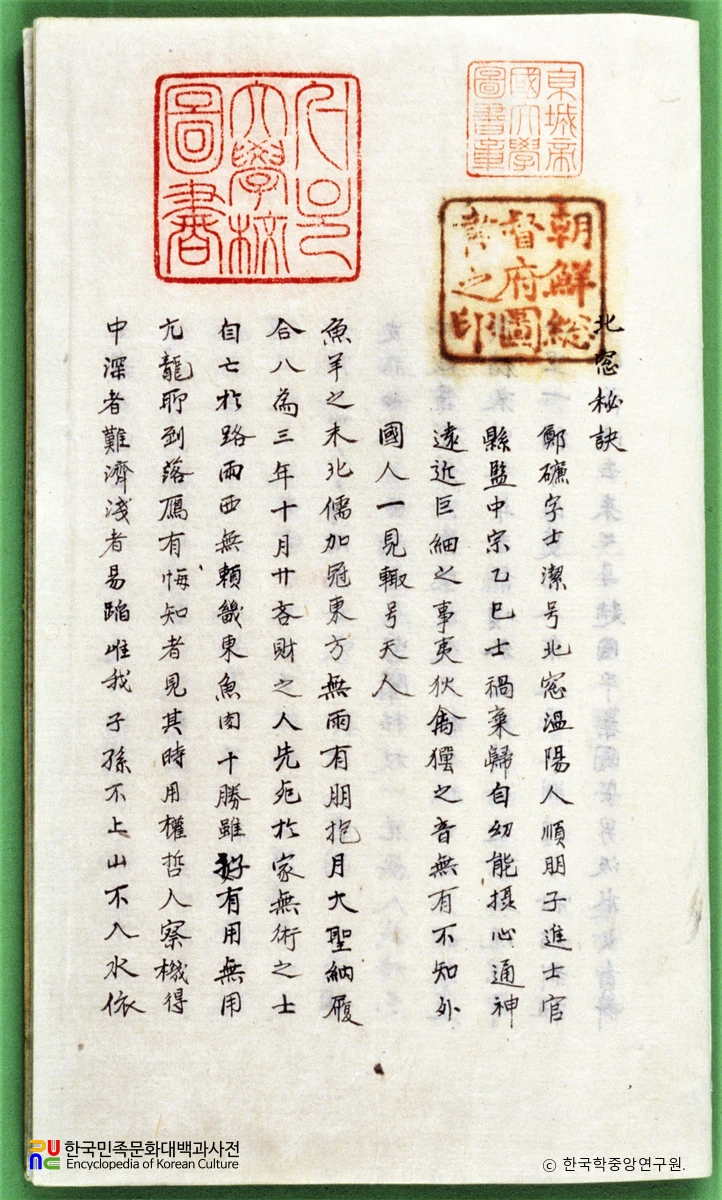 京城帝
國大學
圖書章
朝鮮総
督府圖
書之印
大學校
圖書
北窓秘訣
鄭磏字士潔号北窓溫陽人順朋子進士官
縣監中宗乙巳士禍棄歸自幼能摂心通神
遠近巨細之事夷狄禽獸之音無有不知外
國人一見輙号天人
魚羊之末北儒加冠東方無雨有朋抱月大聖納履
合八為三年十月廿吝財之人先死於家無術之士
自亡於路兩西無賴畿東魚肉十勝雖好有用無用
亢龍聊到落鴈有悔知者見其時用權哲人察機得
中深者難濟淺者易蹈唯我子孫不上山不入水依
한국민족문화대백과사전
Encyclopedia of Korean Culture
ⓒ 한국학중앙연구원.